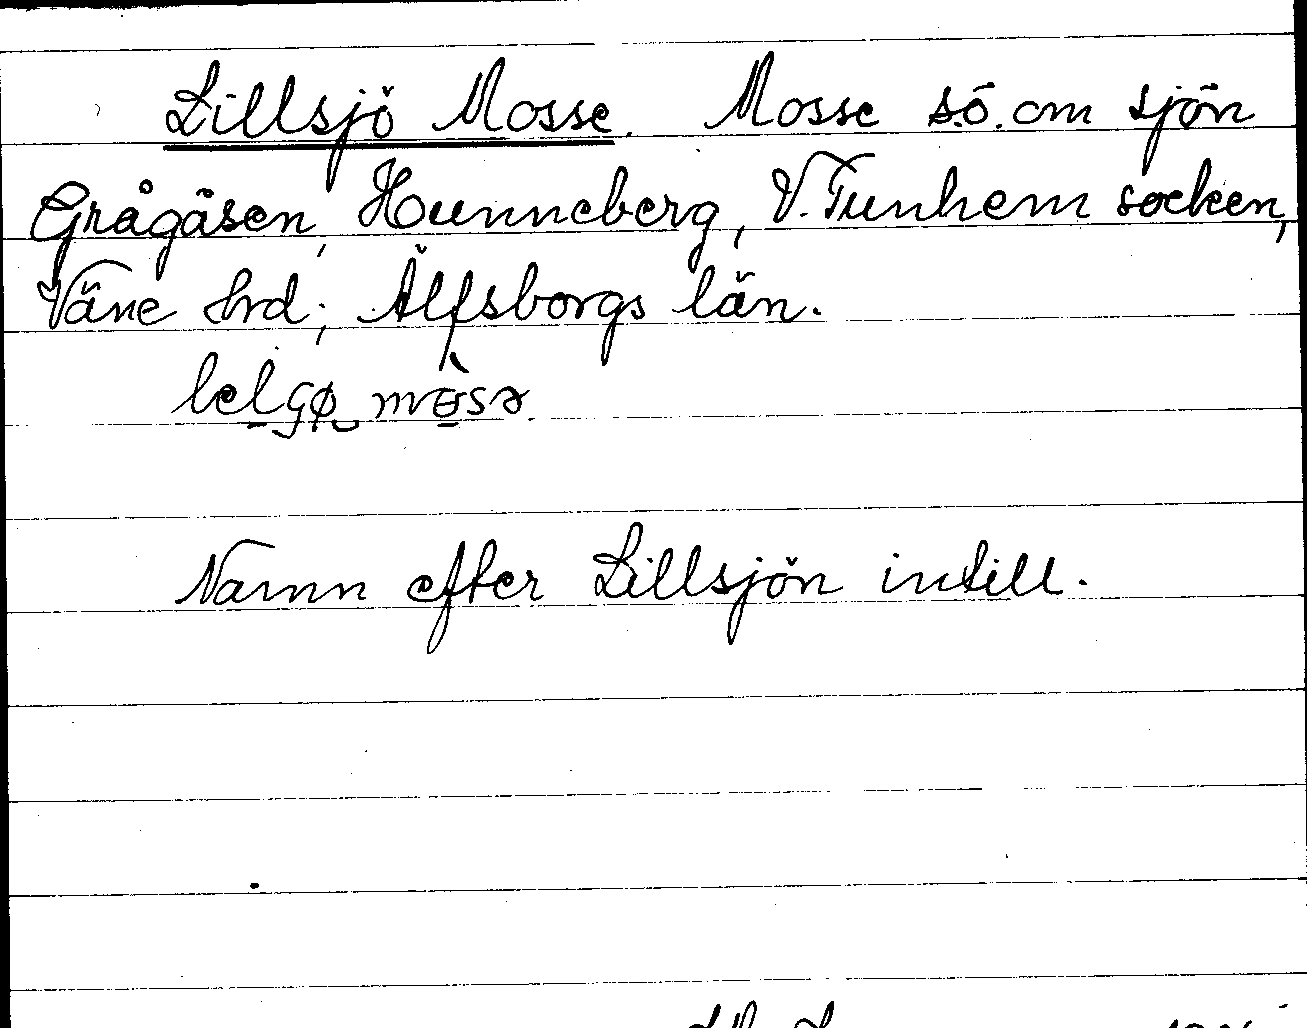 Lillsjö Mosse. Mosse s.ö. om sjön
Grågåsen, Hunneberg, V. Tunhem socken,
Väne hrd; Älfsborgs län.
Namn efter Lillsjön intill.